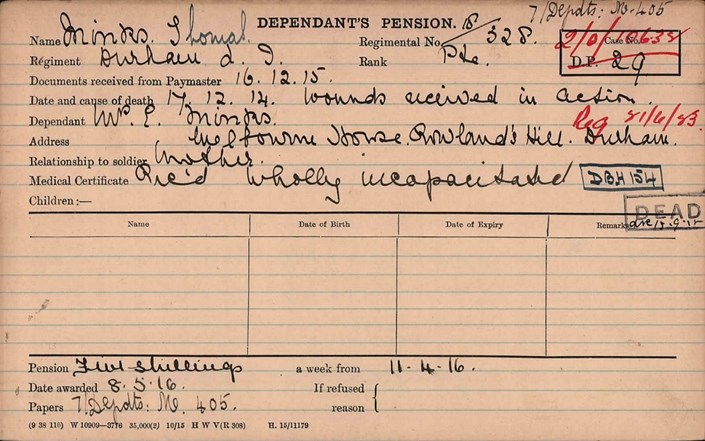 7/Depdts: M. 405
DEPENDANT'S PENSION.
Name Minks. Thomas. Regimental No. 18/328. 2/D/10638 Case No.
Regiment Durham L. I. Rank Pte. D.P. 29
Documents received from Paymaster 16.12.15.
Date and cause of death 17.12.14. Wounds received in action.
Dependant Mrs. E. Minks. Reg 21/6/23.
Address Melbourne House, Rowland's Hill. Durham.
Relationship to soldier Mother.
Medical Certificate Rec'd Wholly incapacitated DBH 154
Children:—
DEAD
Name Date of Birth Date of Expiry Remarks
Pension Five shillings a week from 11.4.16.
Date awarded 8.5.16. If refused
Papers 7/Depdts: M. 405. reason
(9 38 110) W 10909—3776 35,000(2) 10/15 H W V(R 308) H. 15/11179